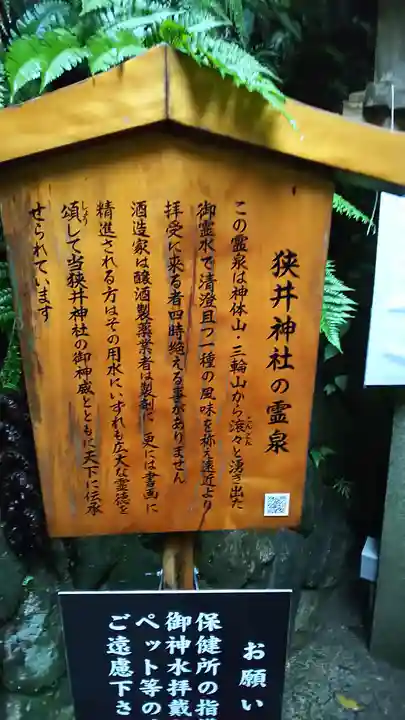 狭井神社の霊泉
この霊泉は神体山・三輪山から滾々と湧き出た
こんこん
御霊水で清澄且つ一種の風味を称え遠近より
拝受に来る者四時絶える事がありません
酒造家は醸酒製薬業者は製剤に更には書画に
精進される方はその用水にいずれも広大な霊徳を
頌して当狭井神社の御神威とともに天下に伝承
しょう
せられています
お願い
保健所の指
御神水拝戴
ペット等の
ご遠慮下さ